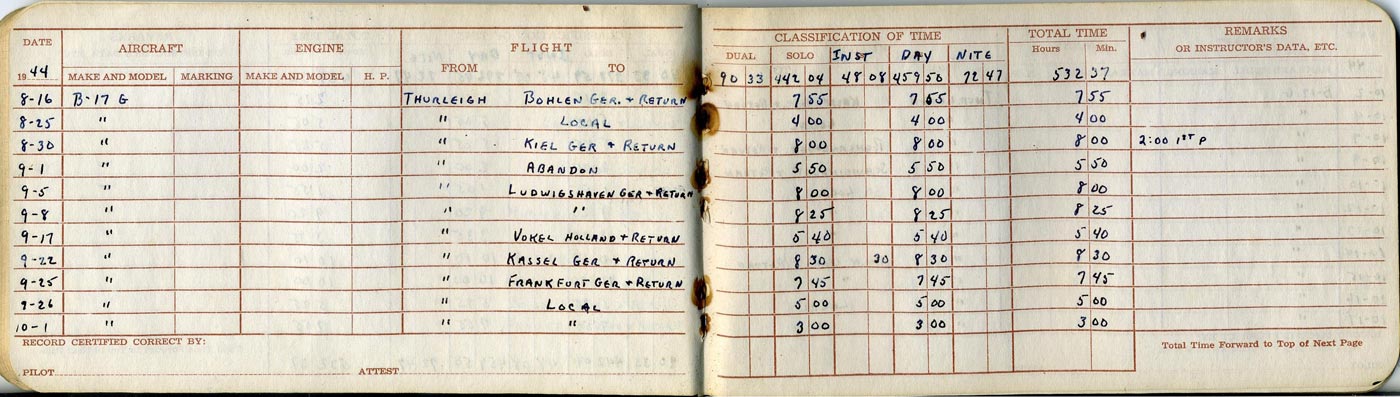 DATE AIRCRAFT ENGINE FLIGHT CLASSIFICATION OF TIME TOTAL TIME REMARKS
DUAL SOLO INST DAY NITE Hours Min. OR INSTRUCTOR'S DATA, ETC.
1944 MAKE AND MODEL MARKING MAKE AND MODEL H. P. FROM TO 90 33 442 04 48 08 459 50 72 47 532 37
8-16 B-17 G THURLEIGH BOHLEN GER. + RETURN 7 55 7 55 7 55
8-25 " " LOCAL 4 00 4 00 4 00
8-30 " " KIEL GER + RETURN 8 00 8 00 8 00 2:00 1ST P
9-1 " " ABANDON 5 50 5 50 5 50
9-5 " " LUDWIGSHAVEN GER + RETURN 8 00 8 00 8 00
9-8 " " " 8 25 8 25 8 25
9-17 " " VOKEL HOLLAND + RETURN 5 40 5 40 5 40
9-22 " " KASSEL GER + RETURN 8 30 30 8 30 8 30
9-25 " " FRANKFURT GER + RETURN 7 45 7 45 7 45
9-26 " " LOCAL 5 00 5 00 5 00
10-1 " " " 3 00 3 00 3 00
RECORD CERTIFIED CORRECT BY: Total Time Forward to Top of Next Page
PILOT ATTEST